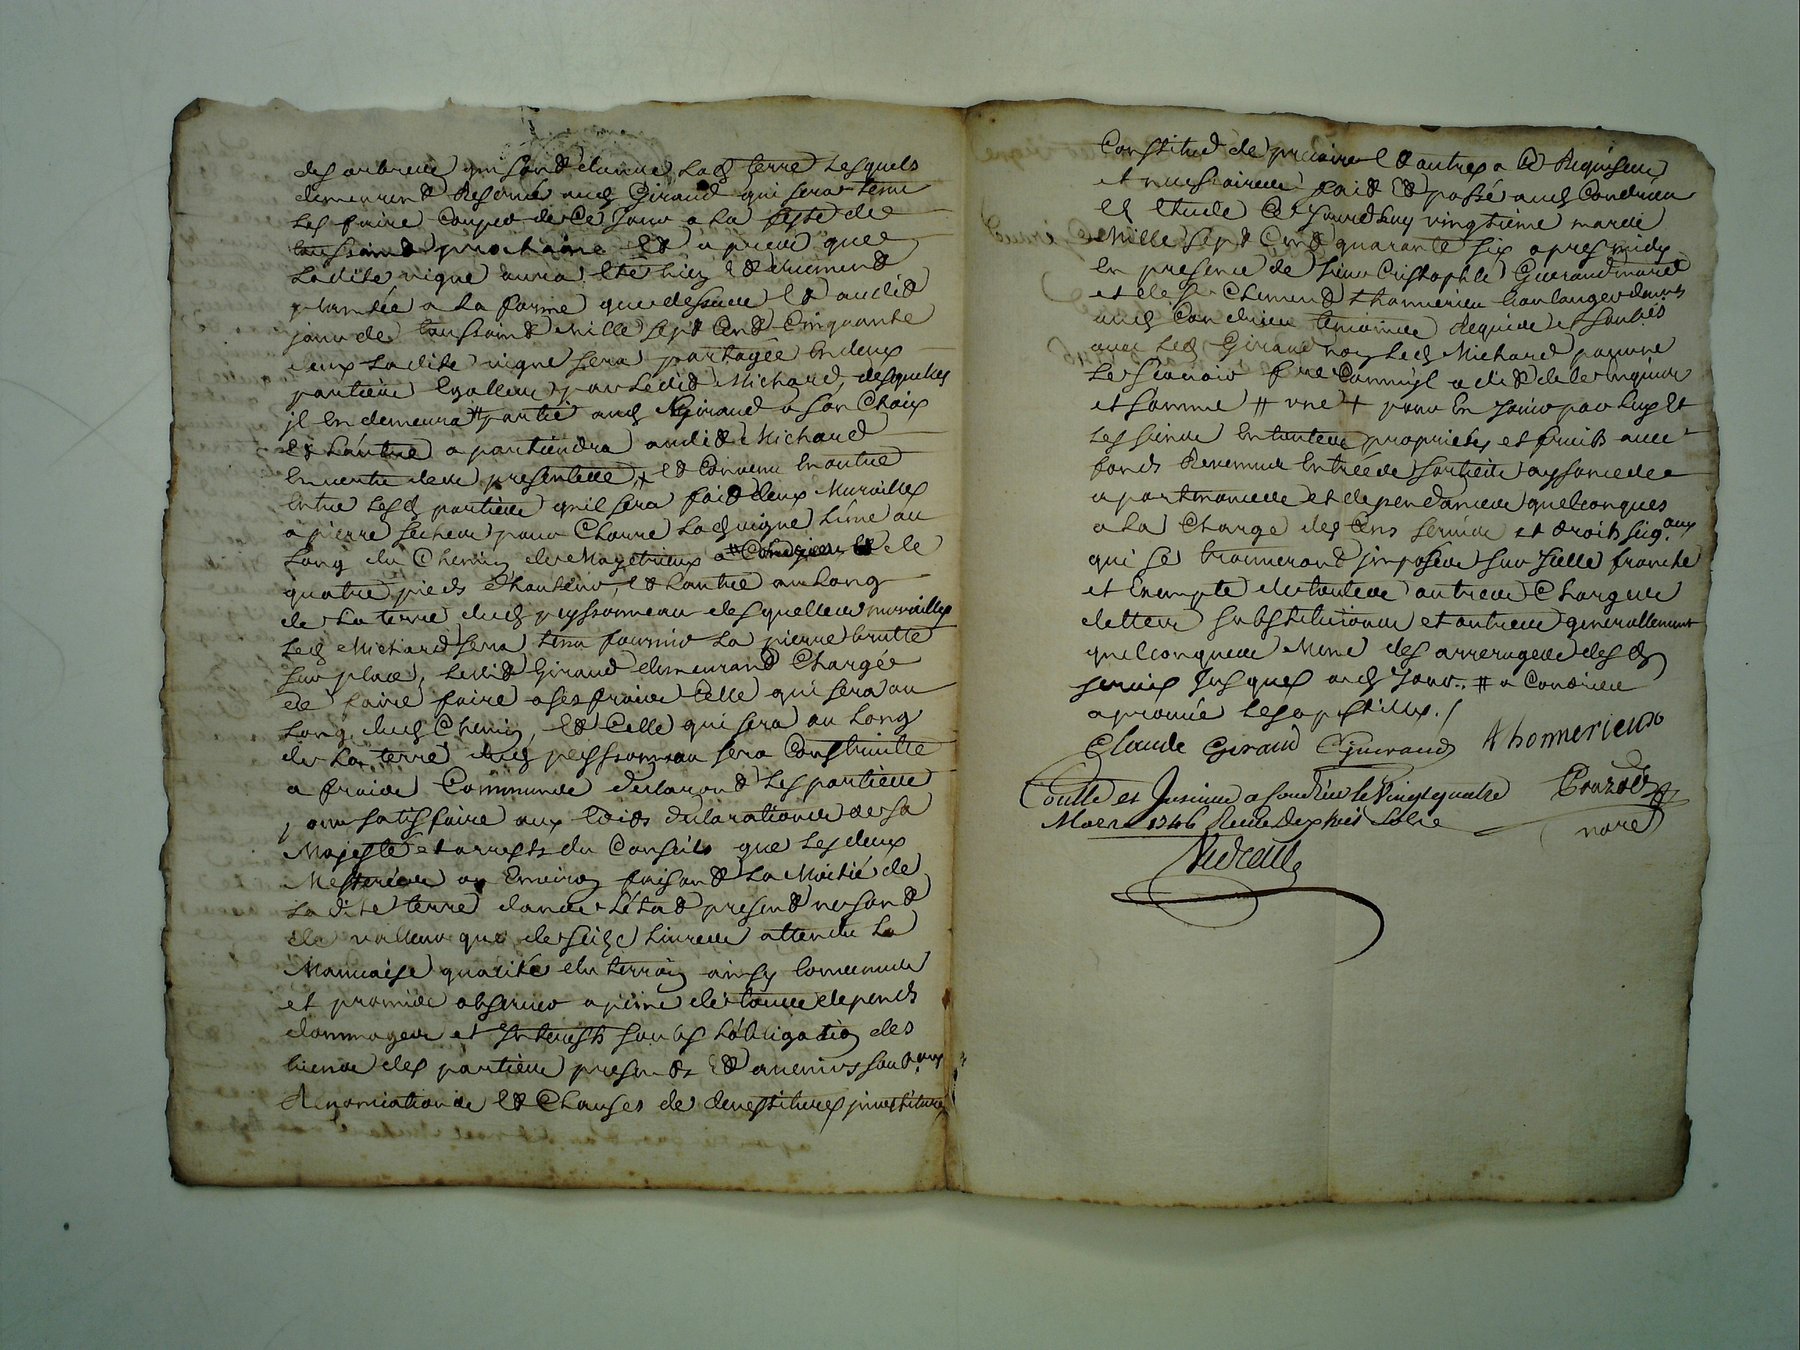 des arbres qui sont dans lad terre lesquels
demeurent reservé aud Giraud qui sera tenu
les faire couper de ce jour a la feste de
toussaint prochaine et apres que
ladite vigne aura eté bien et duement
plantée a la forme que dessus et audit
jour de toussaint mille sept cent cinquante
deux ladite vigne sera partagée en deux
parties egalles par ledit Michard, desquelles
il en demeura partie aud Giraud a son choix
et l'autre apartiendra audit Michard
en vertu des presentes, et convenu en outre
entre lesd parties qu'il sera fait deux murailles
a pierre seches pour clorre lad vigne l'une au
long du chemin de
quatre pieds d'hauteur, et l'autre au long
de la terre dud peyssonneau desquelles murailles
led Michard sera tenu fournir la pierre brutte
sur place, ledit Giraud demeurant chargée
de faire faire a ses frais celle qui sera au
long dud chemin, et celle qui sera au long
de la terre dud peyssonneau sera construitte
a frais communs declarant les parties
pour satisfaire aux edits declarations de sa
Majesté et arrests du conseils que les deux
au environ faisant la moitié de
ladite terre dans l'état present ne sont
de valleur que de seize livres attendu la
mauvaise qualité du terrain ainsy convenus
et promis observer a peine de tous depends
dommages et interests soubs l'obligation des
biens des parties presents et avenirs
renonciations et clauses de devestitures investitures
constitut de precaire et autres a ce requises
et necessaires fait et passé aud Condrieu
et etude ce jourdhuy vingtième mars
mille sept cent quarante six apres midy
en presence de sieur Cristophle Guerand
et de sr Clement Thomerieu boulanger
aud Condrieu temoins requis et soub.és
avec led Giraud non led Michard pour ne
le scavoir a dit de ce enquis
et sommé # une + pour en jouir par luy et
les siens en toutes proprietés et fruits avec
fonds revenus entrées sorties aysances
apartenances et dependances quelconques
a la charge des cens servis et droits seig.aux
qui se trouveront imposés sur icelle franche
et exempte de toutes autres charges
dettes substitutions et autres generallement
quelconques meme des arrerages desd
servis jusques aud jour. # a Condrieu
aprouvé les apostilles. /
Claude Giraud Guerand Thomerieu
Conllé et Insinué a Condrieu le vingt quatre
Mars 1746